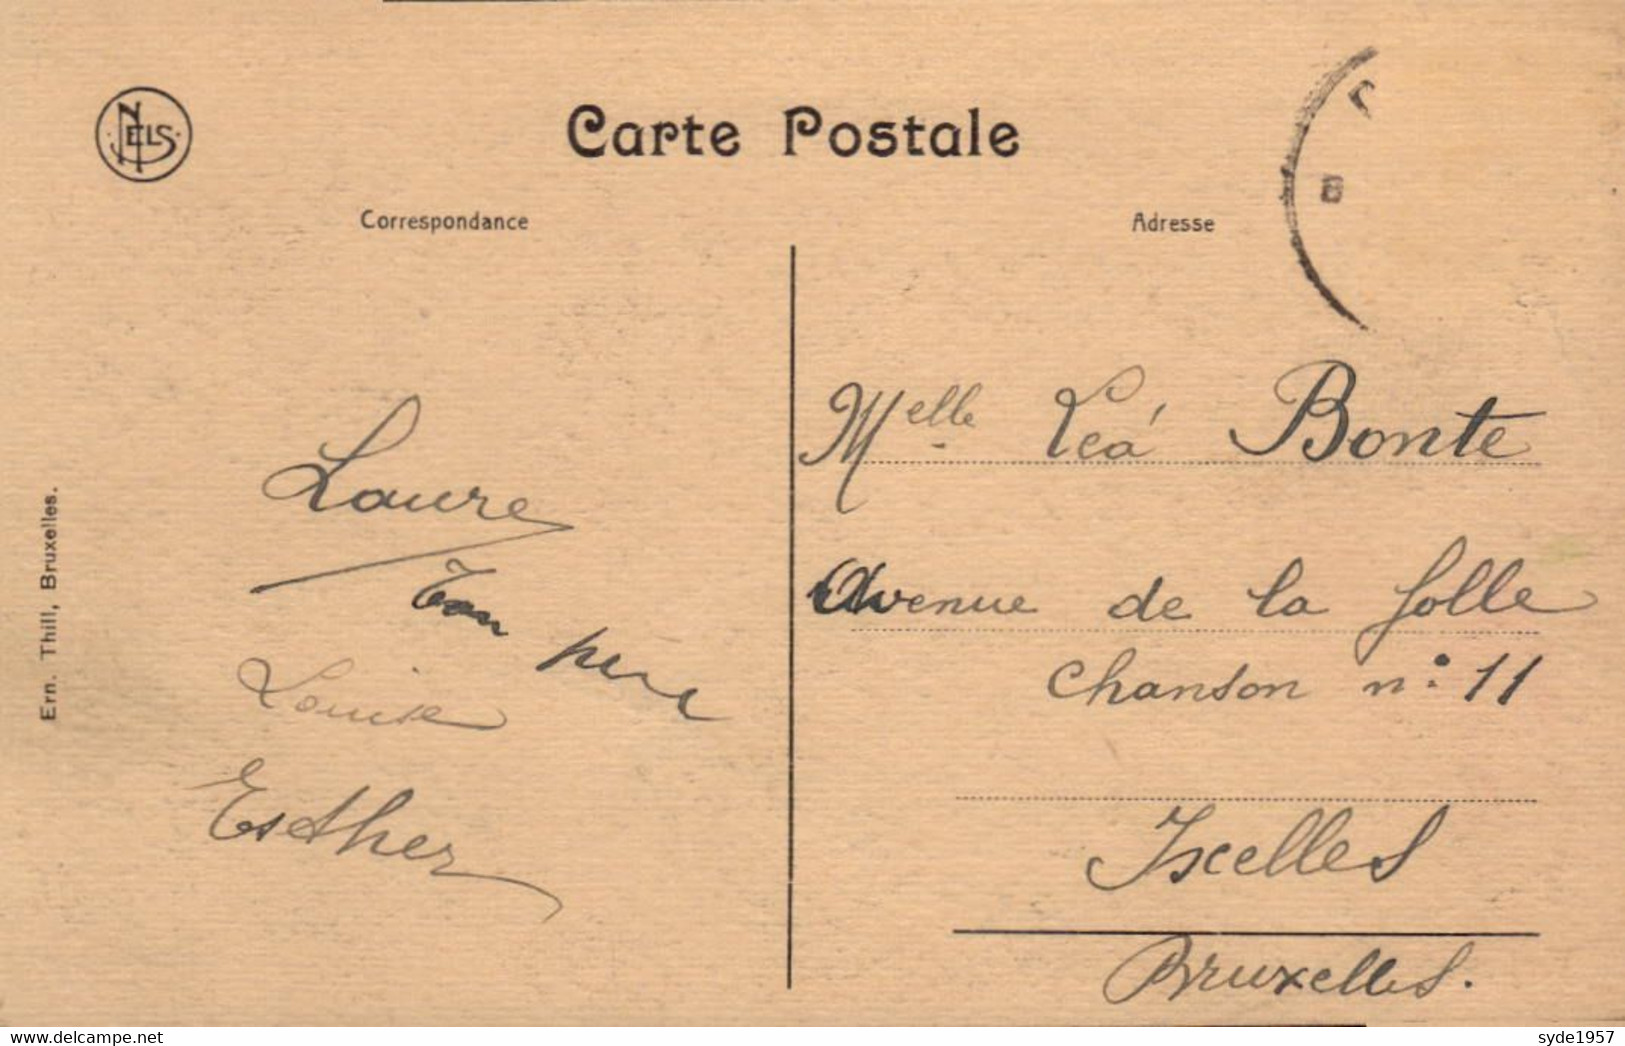 NELS
Carte Postale
Correspondance
Adresse
Laure
Ton père
Louise
Esther
Ern. Thill, Bruxelles.
Melle Léa Bonte
Avenue de la folle
Chanson n° 11
Ixelles
Bruxelles.
B
syde1957